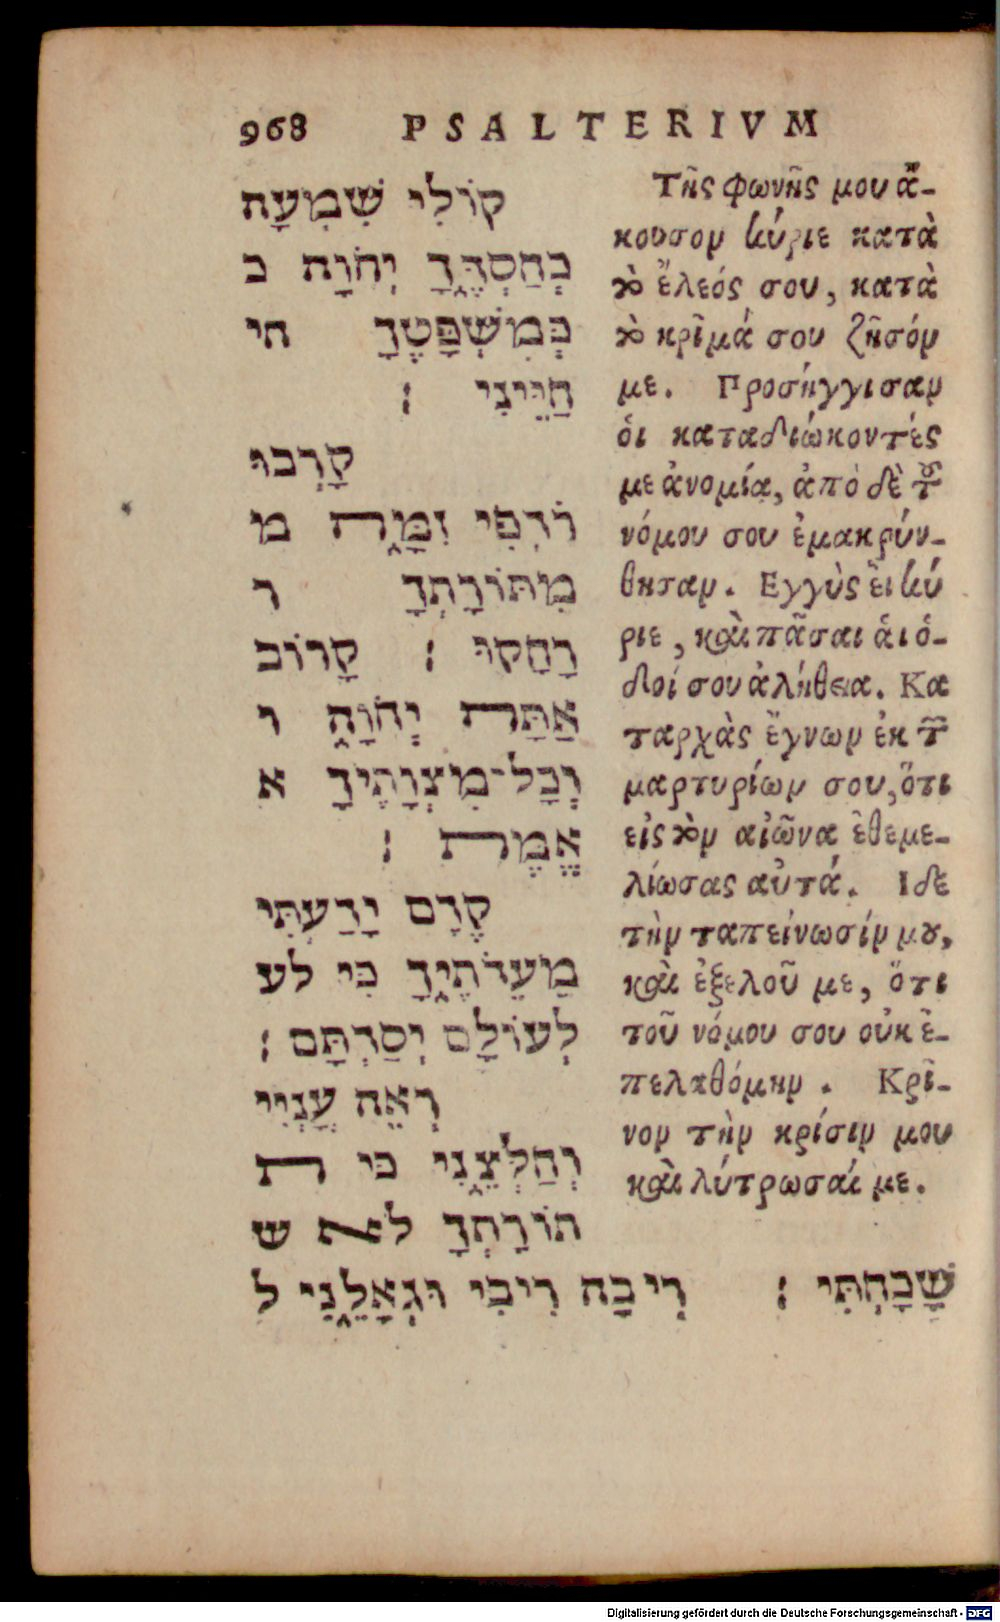 968 PSALTERIVM
קוֹלִי שִׁמְעָה
כְחַסְדֶּךָ יְהֹוָה כ
כְּמִשְׁפָּטֶךָ חי
חַיֵּינִי :
קָרְבוּ
רֹדְפֵי זִמָּה מ
מִתּוֹרָתְךָ ר
רָחָקוּ : קָרוֹב
אַתָּה יְהֹוָה ו
וְכָל־מִצְוֹתֶיךָ א
אֱמֶת :
קֶדֶם יָדַעְתִּי
מֵעֵדֹתֶיךָ כִּי לע
לְעוֹלָם יְסַדְתָּם :
רְאֵה עָנְיִי
וְחַלְּצֵנִי כי ת
תוֹרָתְךָ לא ש
שָׁכָחְתִּי : רִיבָה רִיבִי וּגְאָלֵנִי לִ
Τῆς φωνῆς μου ἄ-
κουσον κύριε κατὰ
τὸ ἔλεός σου, κατὰ
τὸ κρῖμά σου ζῆσόν
με. Προσήγγισαν
ὁι καταδιώκοντές
με ἀνομία, ἀπὸ δὲ τοῦ
νόμου σου ἐμακρύν-
θησαν. Εγγὺς εἶ κύ
ριε, καὶ πᾶσαι ἁι ὁ-
δοί σου ἀλήθεια. Κα
ταρχὰς ἔγνων ἐκ τῶν
μαρτυρίων σου, ὅτι
εἰς τὸν αἰῶνα ἐθεμε-
λίωσας αὐτά. Ιδε
τὴν ταπείνωσίν μου,
καὶ ἐξελοῦ με, ὅτι
τοῦ νόμου σου οὐκ ἐ-
πελαθόμην. Κρῖ-
νον τὴν κρίσιν μου
καὶ λύτρωσαί με.
Digitalisierung gefördert durch die Deutsche Forschungsgemeinschaft - DFG